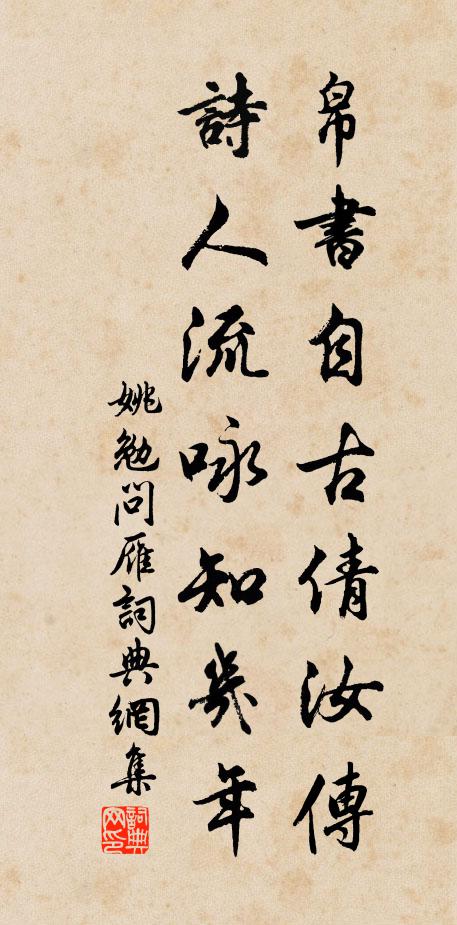 帛書自古倩汝傳
詩人流咏知幾年
姚勉問雁詞典網集
詞典网印